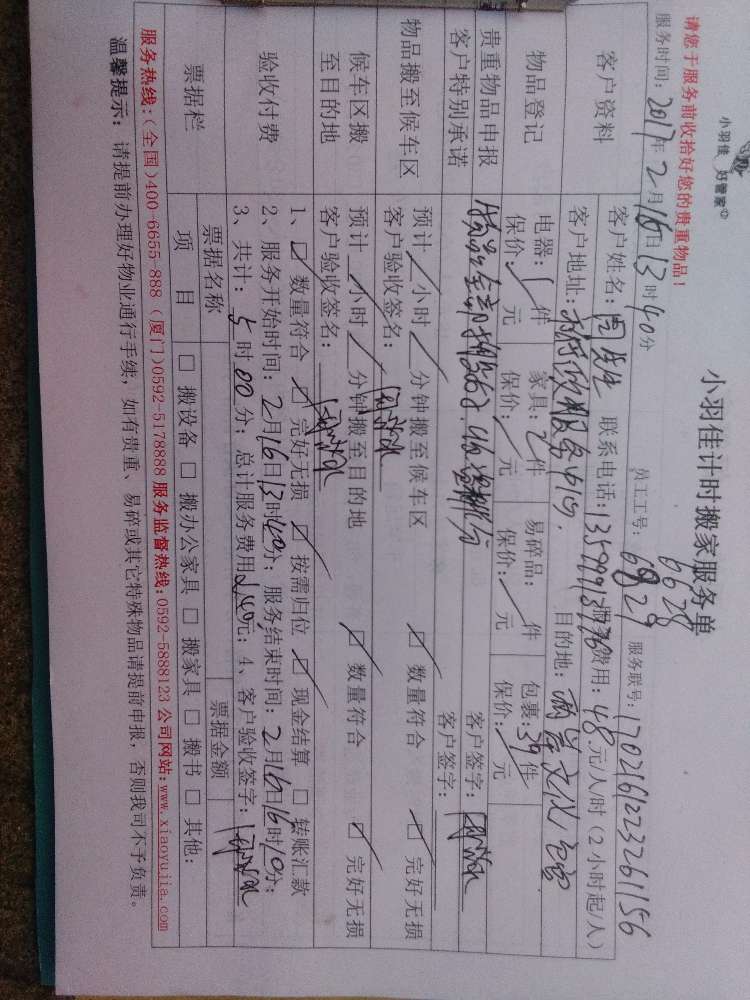 小羽佳 好管家
小羽佳计时搬家服务单
请您于服务前收拾好您的贵重物品！
员工工号：6628
6829
服务联号：1702161223261156
服务时间：2017年2月16日13时40分
客户资料
客户姓名：周先生 联系电话： 服务费用：48元/人/时（2小时起/人）
客户地址： 目的地：
物品登记
电器：/件 家具：2件 易碎品：/件 包裹：39件
保价：/元 保价：/元 保价：/元 保价：/元
贵重物品申报
客户特别承诺
客户签字：
客户签字：
物品搬至候车区
预计/小时/分钟搬至候车区 数量符合 完好无损
客户验收签名：
候车区搬
至目的地
预计/小时/分钟搬至目的地 数量符合 完好无损
客户验收签名：
验收付费
1、数量符合 完好无损 按需归位 现金结算 转账汇款
2、服务开始时间：2月16日13时40分；服务结束时间：2月16日16时10分；
3、共计：5时00分；总计服务费用240元；4、客户验收签字：
票据栏
票据名称 票据金额
项目 搬设备 搬办公家具 搬家具 搬书 其他：
服务热线：（全国）400-6655-888（厦门）0592-5178888 服务监督热线：0592-5888123 公司网站：www.xiaoyujia.com
温馨提示：请提前办理好物业通行手续，如有贵重、易碎或其它特殊物品请提前申报，否则我司不予负责。